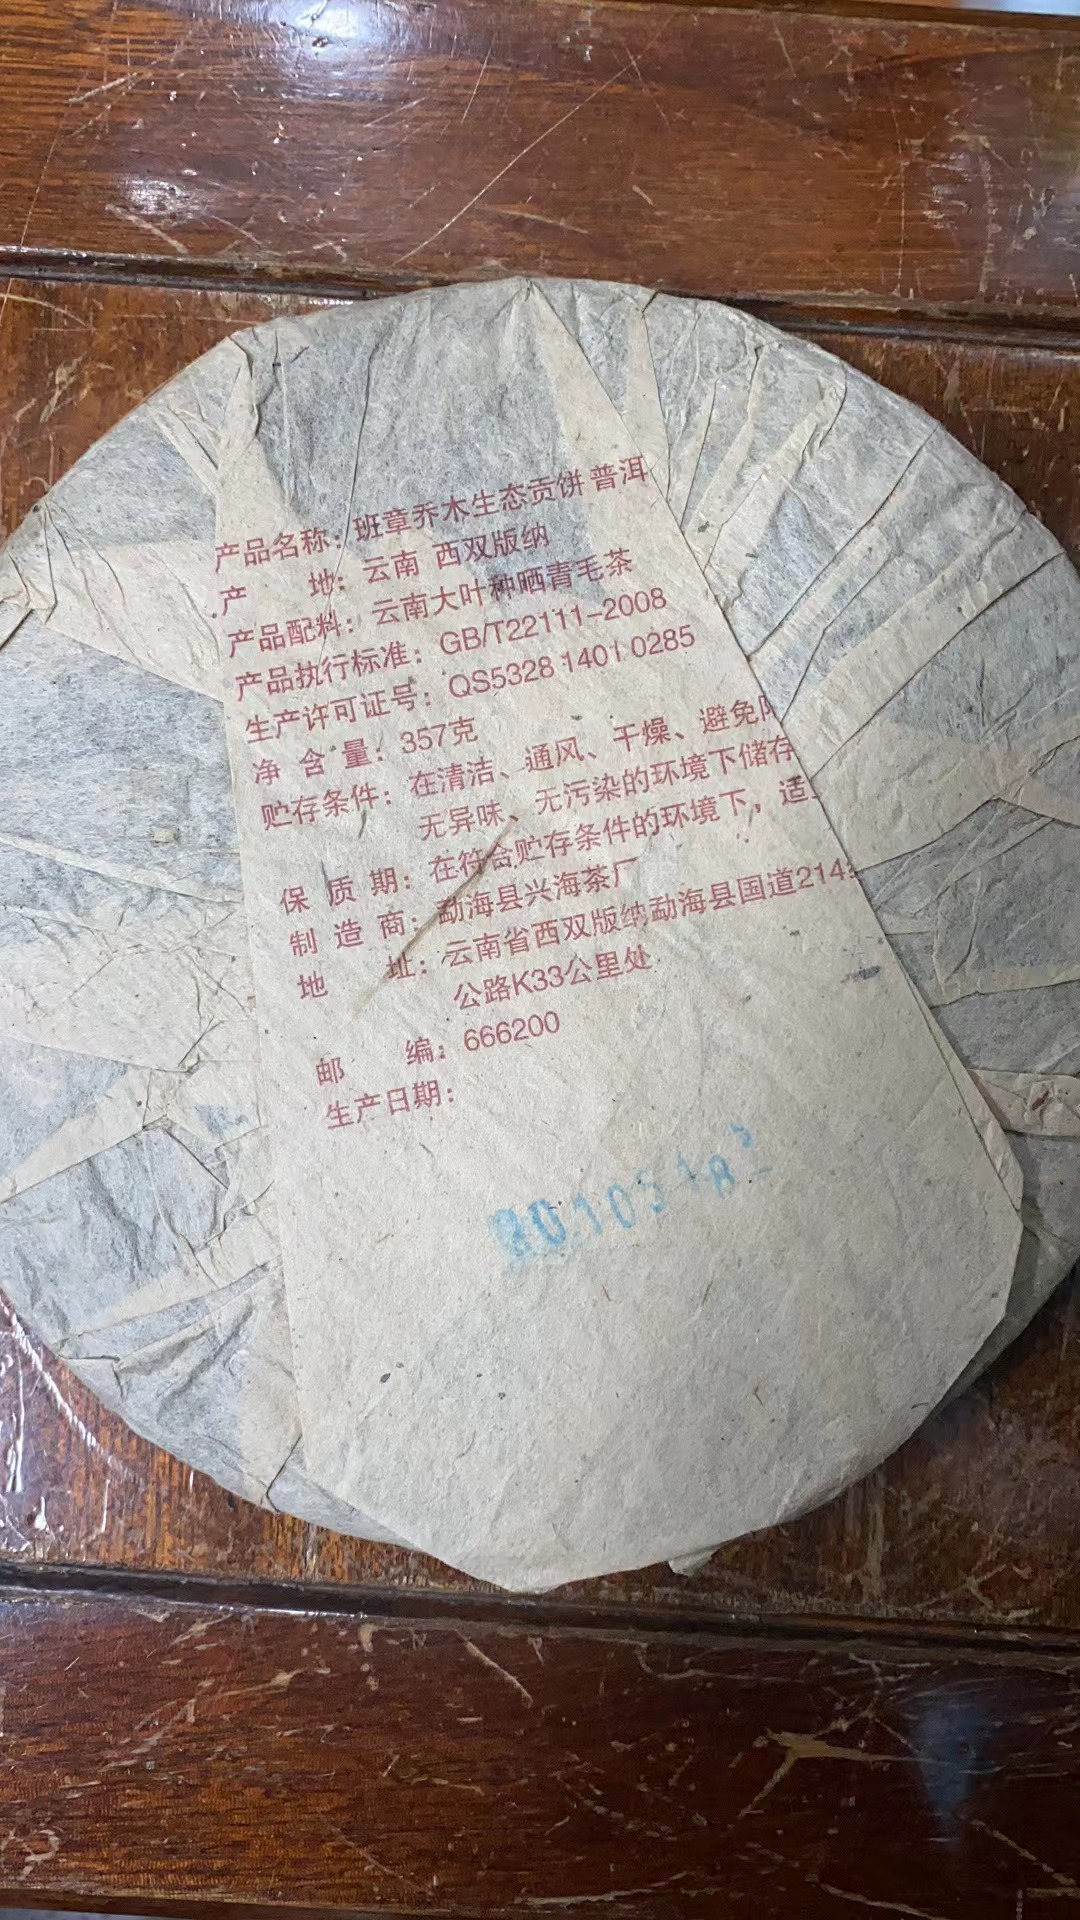 产品名称：班章乔木生态贡饼 普洱
产 地：云南 西双版纳
产品配料：云南大叶种晒青毛茶
产品执行标准：GB/T22111-2008
生产许可证号：QS5328 1401 0285
净 含 量：357克
贮存条件：在清洁、通风、干燥、避免
无异味、无污染的环境下储存
保 质 期：在符合贮存条件的环境下，适
制 造 商：勐海县兴海茶厂
地 址：云南省西双版纳勐海县国道214
公路K33公里处
邮 编：666200
生产日期：